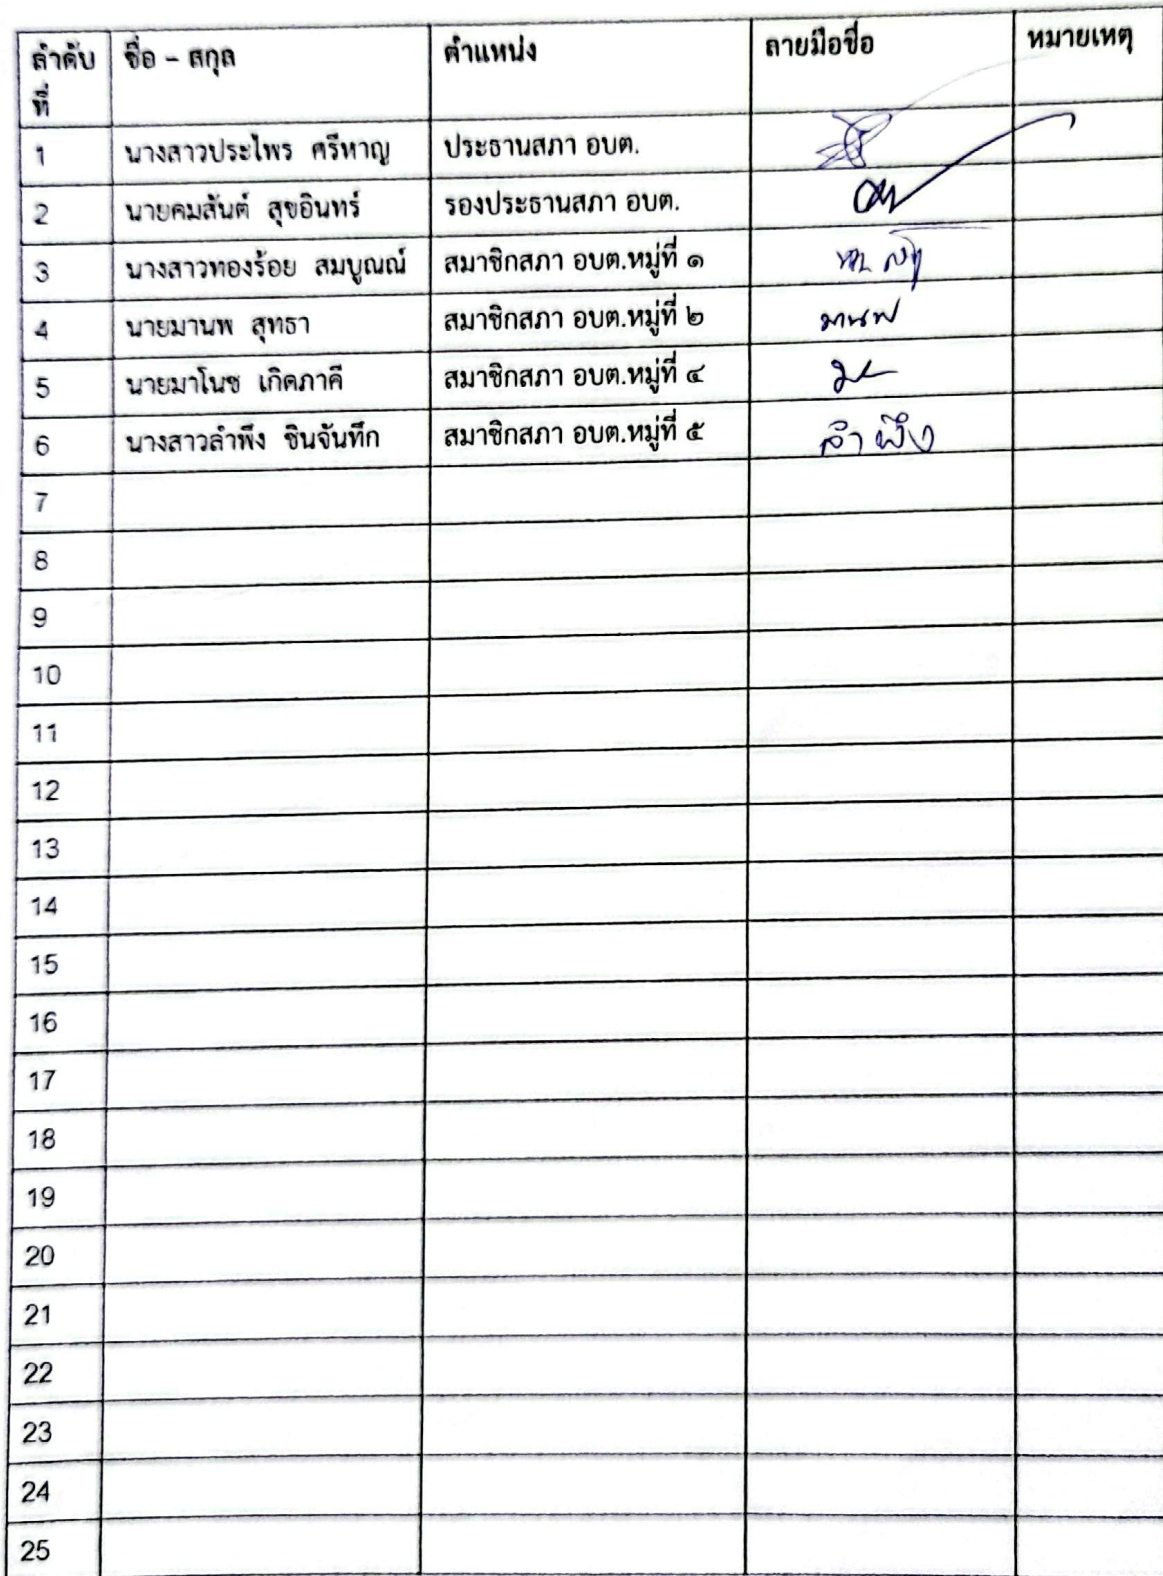 ลำดับที่ ชื่อ – สกุล ตำแหน่ง ลายมือชื่อ หมายเหตุ
1 นางสาวประไพร ศรีหาญ ประธานสภา อบต.
2 นายคมสันต์ สุขอินทร์ รองประธานสภา อบต.
3 นางสาวทองร้อย สมบูณณ์ สมาชิกสภา อบต.หมู่ที่ ๑
4 นายมานพ สุทธา สมาชิกสภา อบต.หมู่ที่ ๒ มานพ
5 นายมาโนช เกิดภาคี สมาชิกสภา อบต.หมู่ที่ ๔
6 นางสาวลำพึง ชินจันทึก สมาชิกสภา อบต.หมู่ที่ ๕ ลำพึง
7
8
9
10
11
12
13
14
15
16
17
18
19
20
21
22
23
24
25